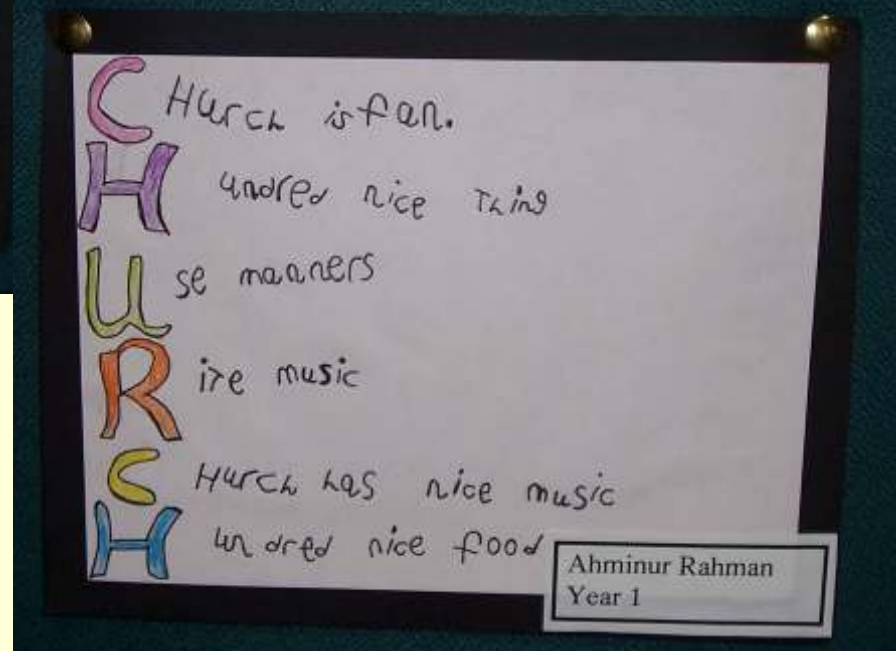 CHurch is fan.
Hundred nice Thing
Use manners
Rite music
CHurch has nice music
Hundred nice food
Ahminur Rahman
Year 1